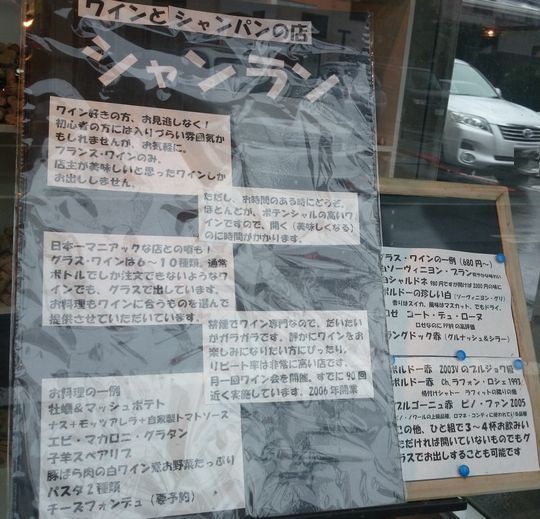 ワインとシャンパンの店
シャンラン
ワイン好きの方、お見逃しなく！
初心者の方には入りづらい雰囲気か
もしれませんが、お気軽に。
フランス・ワインのみ。
店主が美味しいと思ったワインしか
お出ししません。
ただし、お時間のある時にどうぞ。
ほとんどが、ポテンシャルの高いワ
インですので、開く（美味しくなる）
のに時間がかかります。
日本一マニアックな店との噂も！
グラス・ワインは6～10種類。通常
ボトルでしか注文できないようなワ
インでも、グラスで出しています。
お料理もワインに合うものを選んで
提供させていただいています。
禁煙でワイン専門なので、だいたい
がガラガラです。静かにワインをお
楽しみになりたい方にぴったり。
リピート率は非常に高い店です。
月一回ワイン会を開催。すでに90回
近く実施しています。2006年開業
お料理の一例
牡蠣＆マッシュポテト
ナス＋モッツアレラ＋自家製トマトソース
エビ・マカロニ・グラタン
子羊スペアリブ
豚ばら肉の白ワイン煮お野菜たっぷり
パスタ2種類
チーズフォンデュ（要予約）
グラス・ワインの一例（680円～）
ソーヴィニヨン・ブラン
シャルドネ
ボルドーの珍しい白（ソーヴィニヨン・グリ）
香りはスイカ、風味はマスカット、でもドライ。
ロゼ コート・デュ・ローヌ
ラングドック赤（グルナッシュ＆シラー）
ボルドー赤 2003Vのブルジョワ級
ボルドー赤 Ch.ラフォン・ロシェ1993
ブルゴーニュ赤 ピノ・ファン2005
の他、ひと組で3～4杯お飲みい
ただければ開いていないものでもグ
ラスでお出しすることも可能です